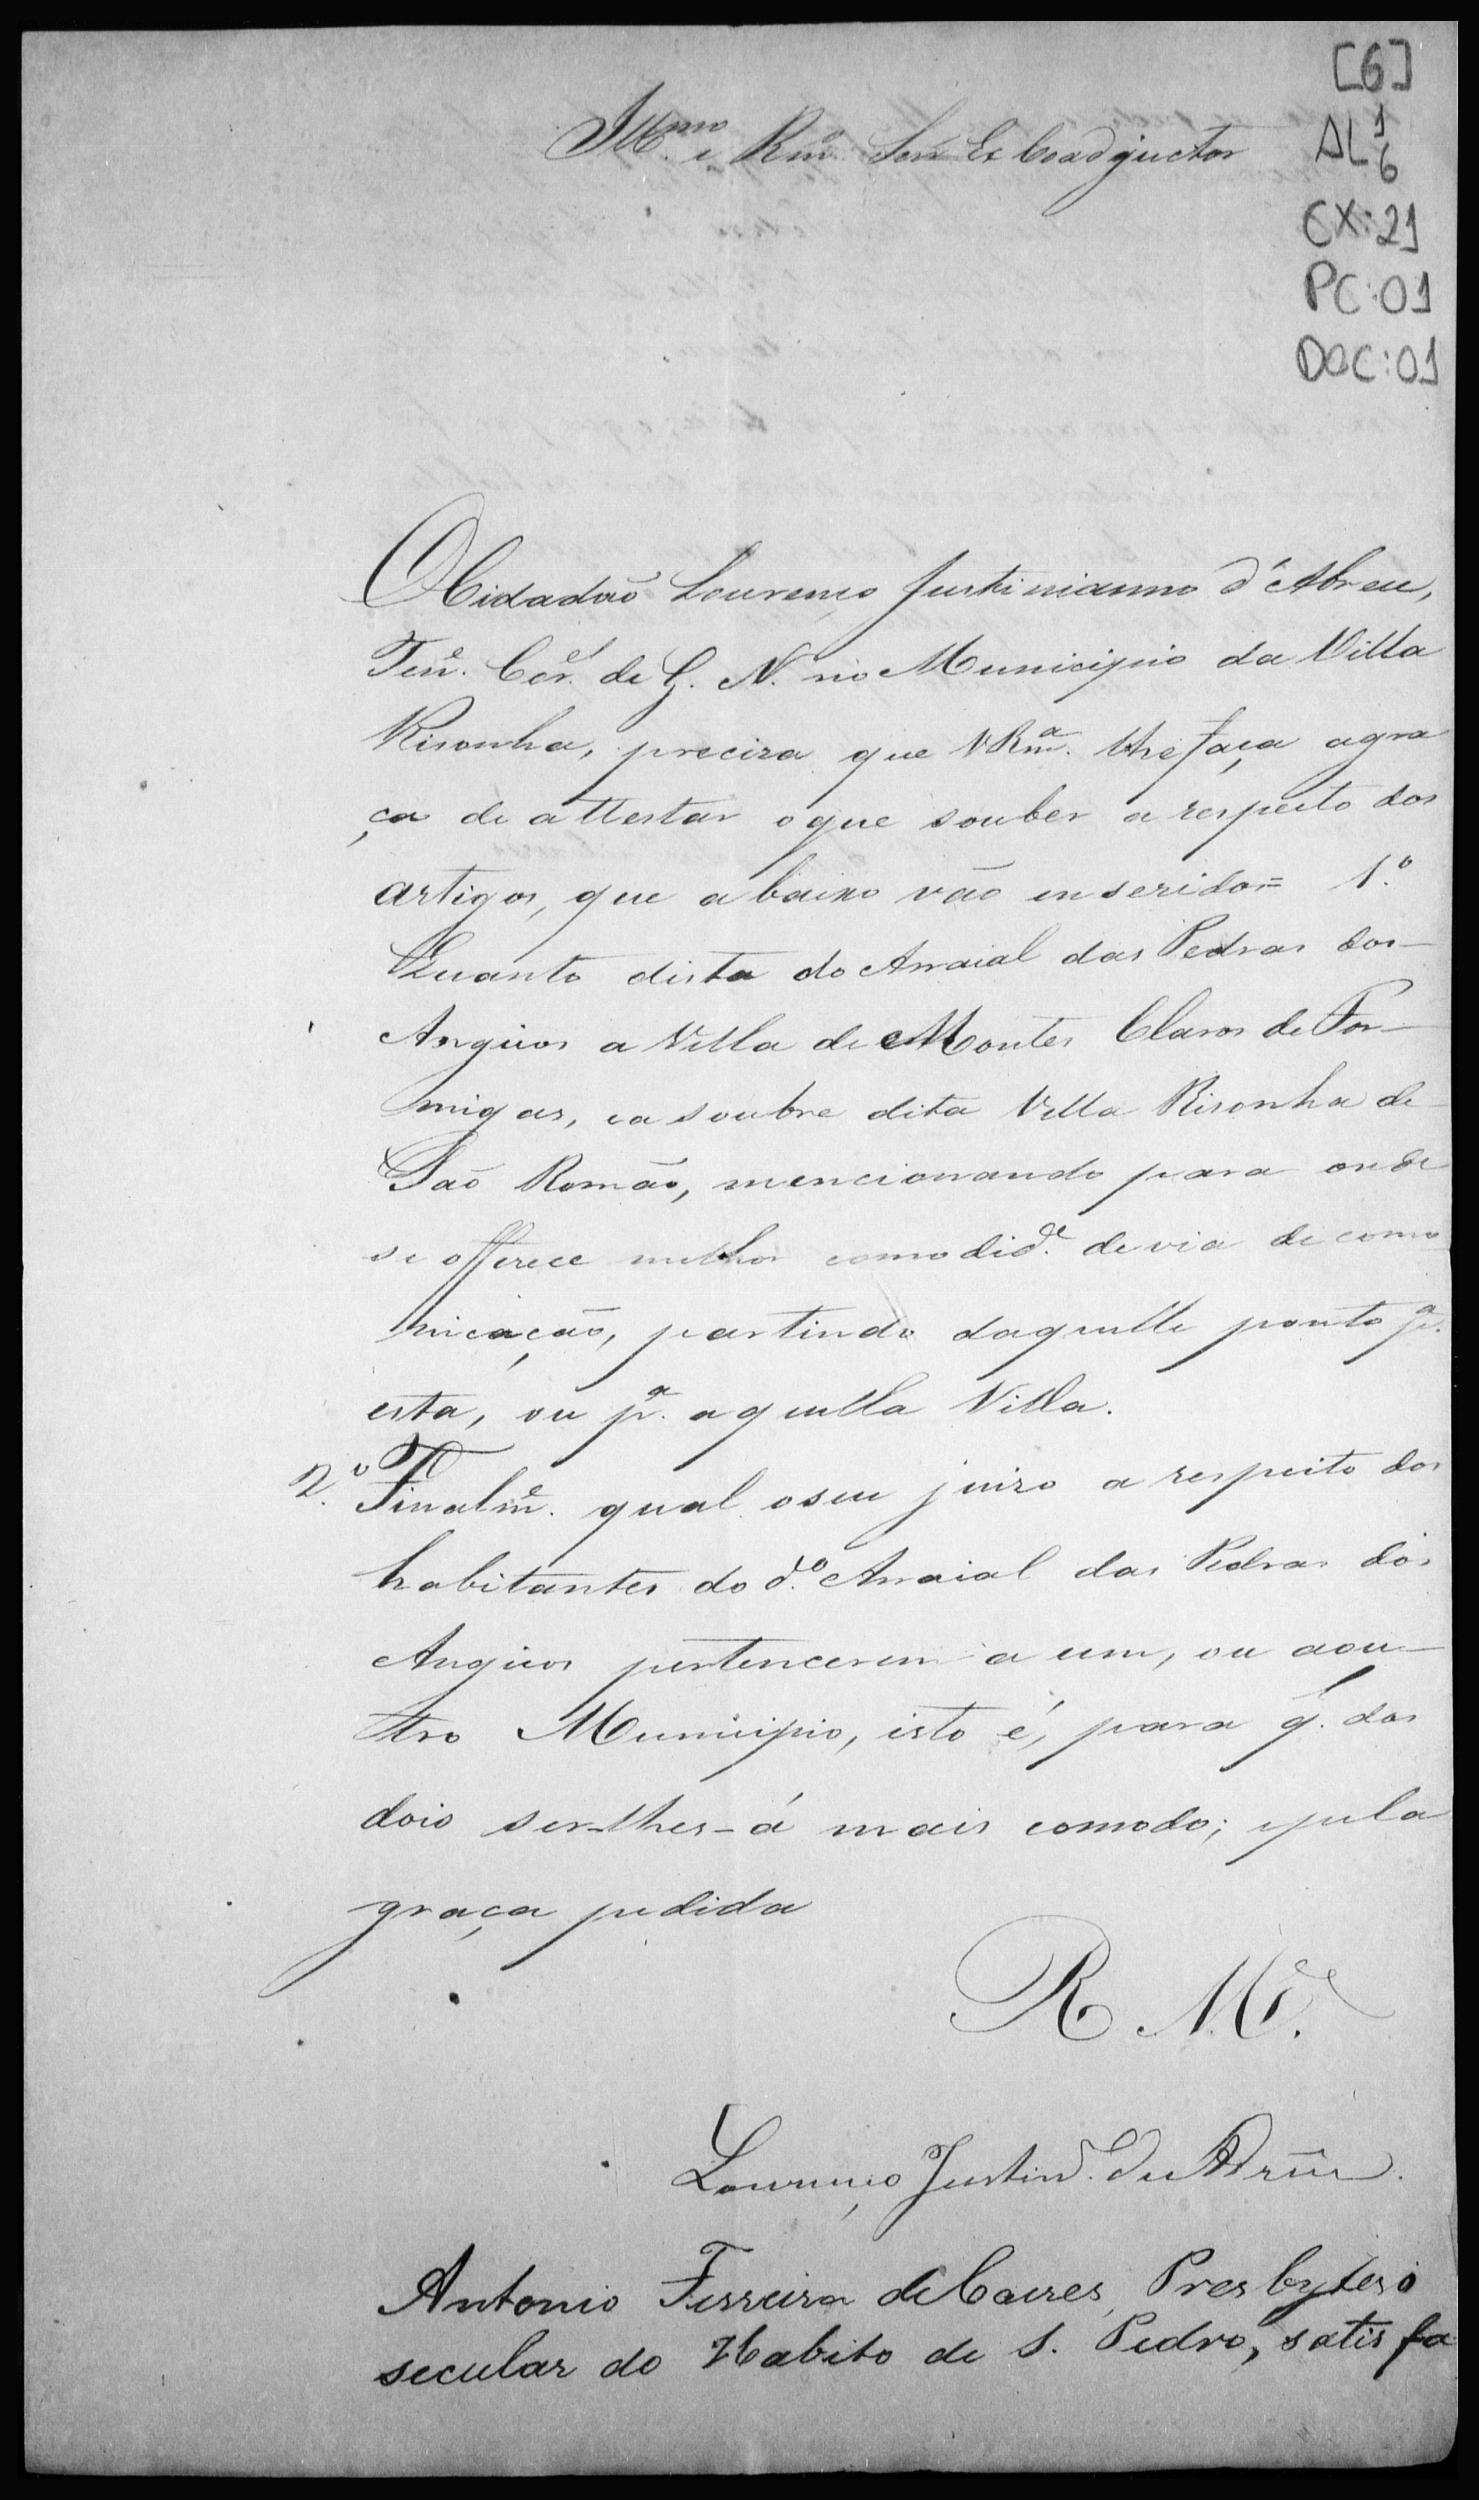 [6]
AL 1
6
CX: 21
PC: 01
DOC: 01
Ill.mo e Rm.o Senr Ex Coadjuctor
O Cidadão Lourenço Justinianno d'Abreu,
Ten.e Cor.el de G. N. no Municipio da Villa
Risonha, preciza que V Rm.a lhe faça agra
ça de attestar oque souber a respeito dos
artigos, que abaixo vão enseridos= 1.º
Quanto dista do Arraial das Pedras dos
Angicos a Villa de Montes Claros de For-
migas, ea soubre dita Villa Risonha de
São Romão, mencionando para onde
se offerece melhor comodid.e devia de como
nicação, partindo daquelle ponto p.a
esta, ou p.a aquella Villa.
2.º Finalm.e qual oseu juizo a respeito dos
habitantes do d.o Arraial das Pedras dos
Angicos pertencerem a um, ou aou-
tro Municipio, isto é, para q. dos
dois ser-lhes-á mais comodo; epela
graça pedida
R. M.ce
Lourenço Justin.o de Abreu.
Antonio Ferreira de Caires, Presbytero
secular do Habito de S. Pedro, satisfa